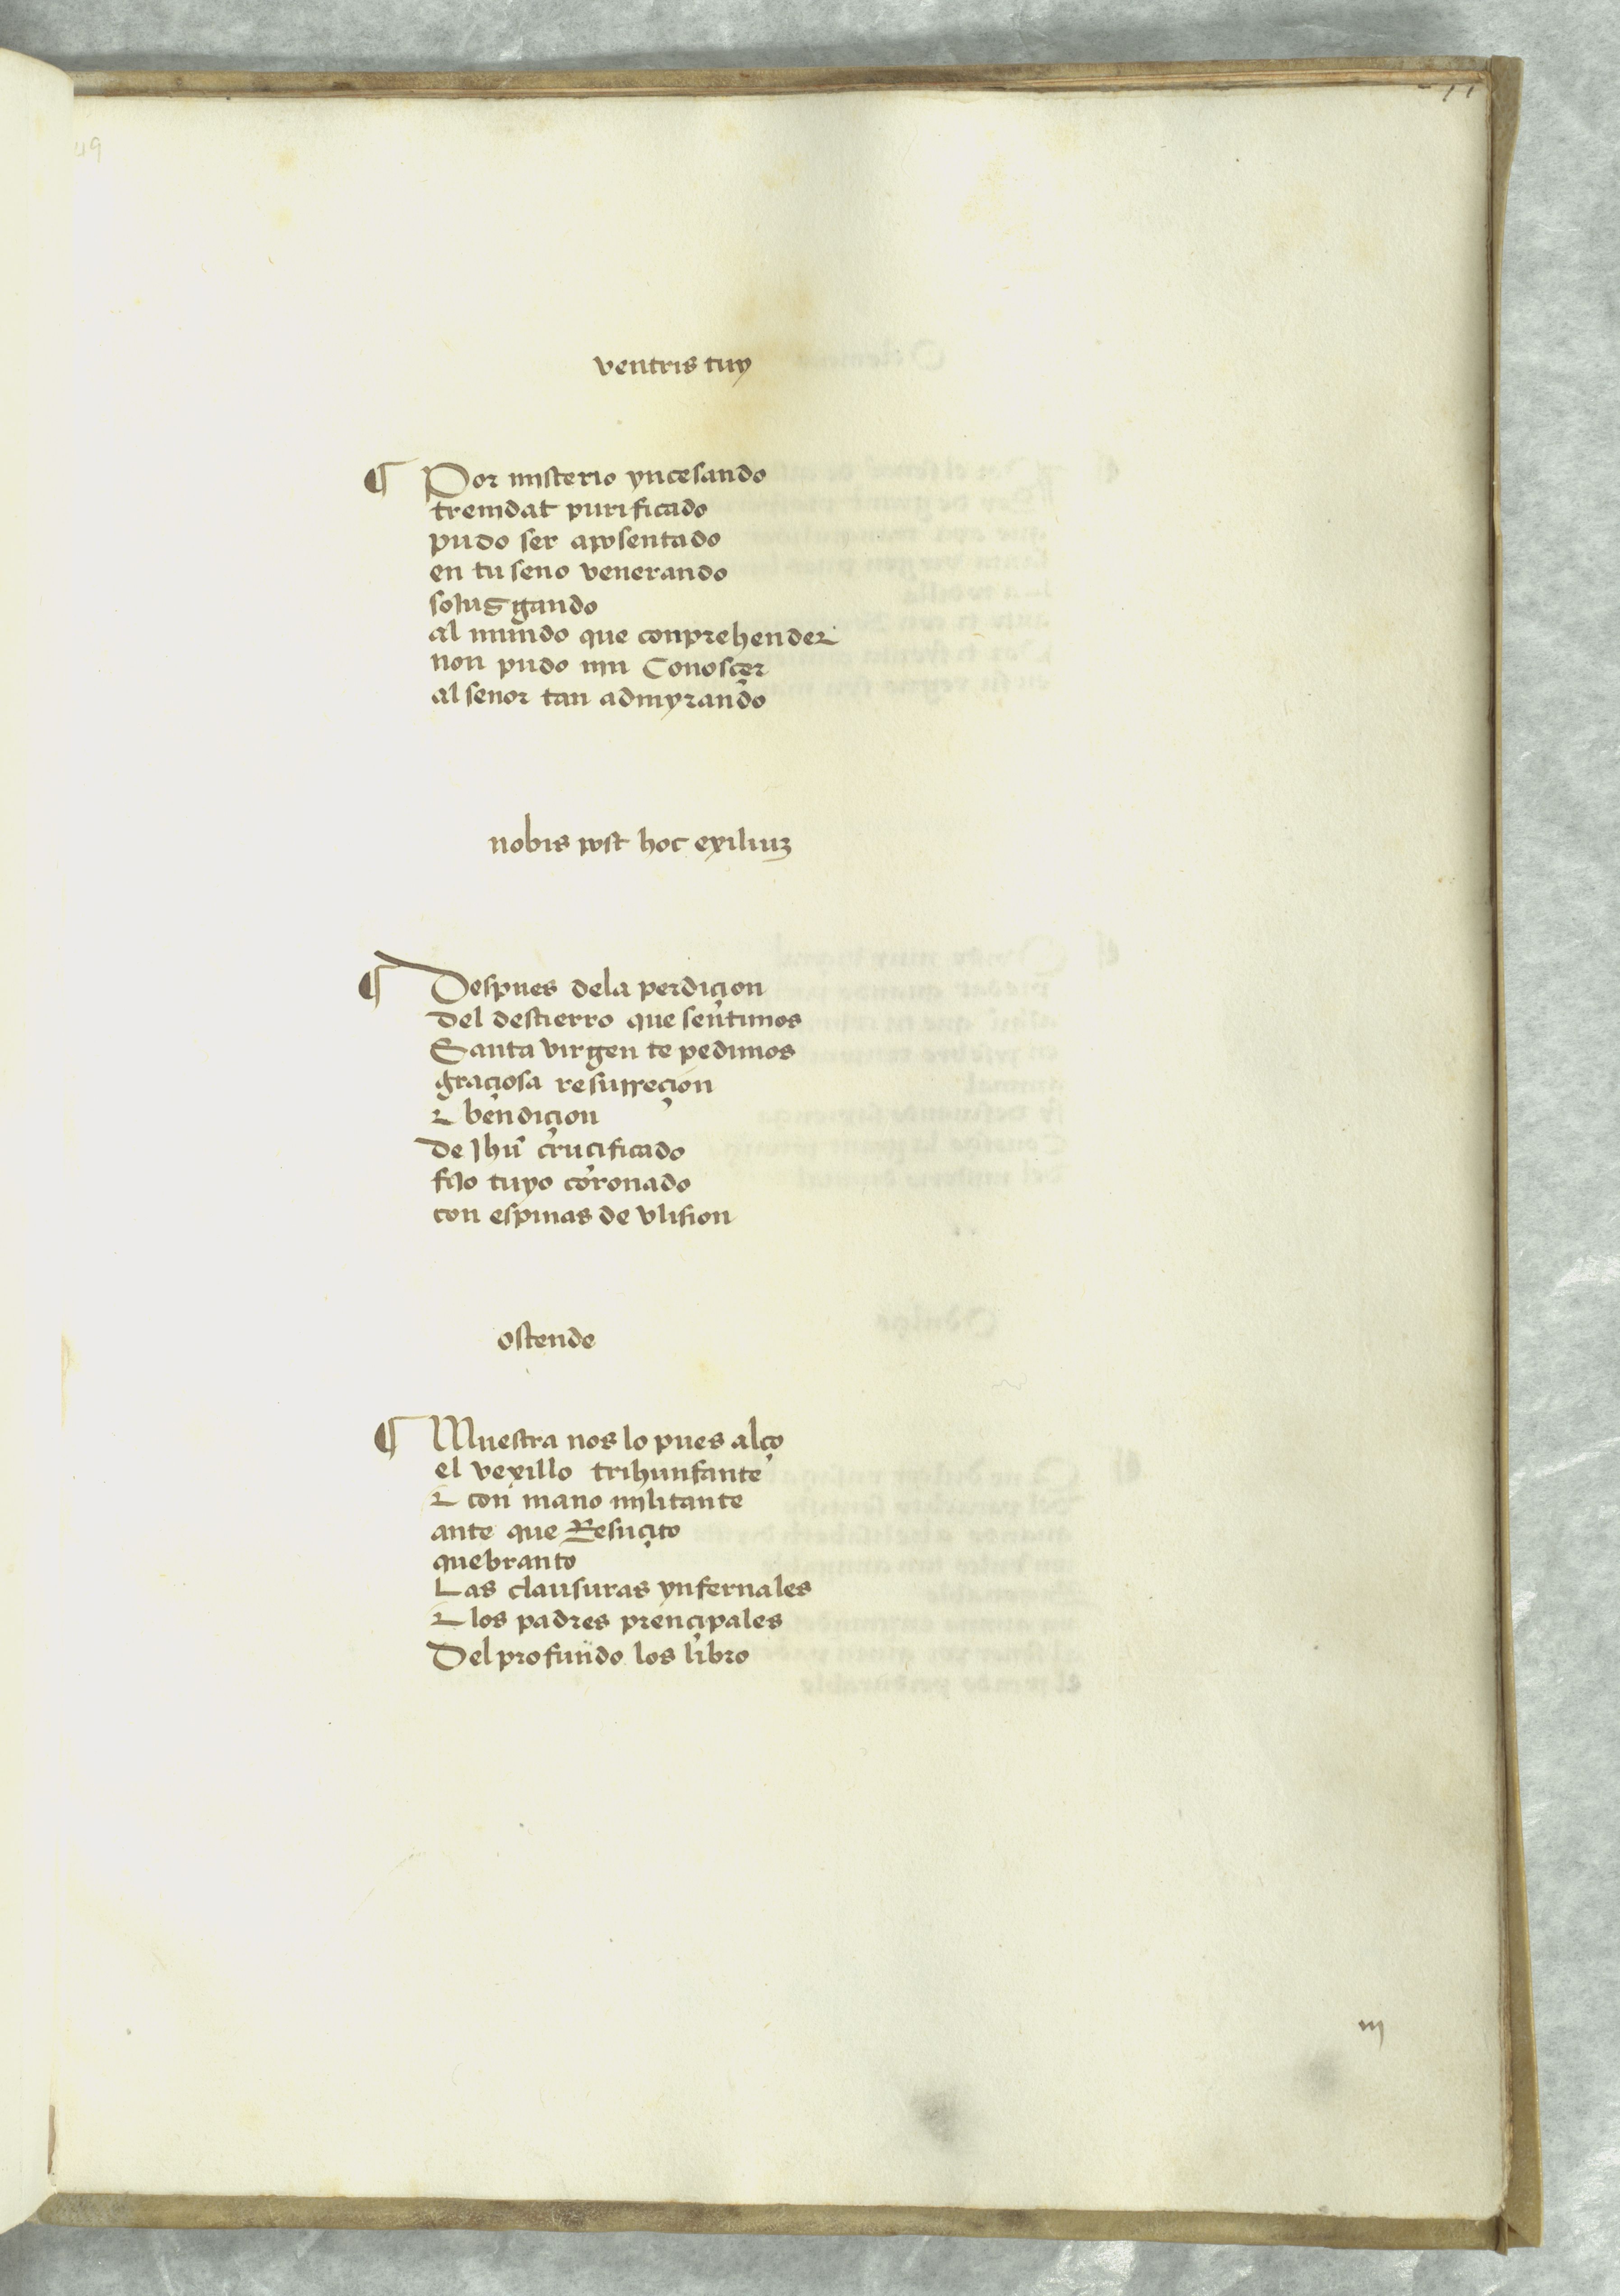 ventris tuy
¶ Por misterio yncesando
trenidat purificado
pudo ser aposentado
en tu seno venerando
sojusgando
al mundo que conprehender
non pudo nin Conosçer
al senor tan admyrando
nobis post hoc exilium
¶ Despues dela perdiçion
del destierro que sentimos
Santa virgen te pedimos
graçiosa resurreçion
⁊ bendiçion
de Jhũ crucificado
fijo tuyo coronado
con espinas de vlision
ostende
¶ Muestra nos lo pues alço
el vexillo trihunfante
⁊ con mano militante
ante que Resuçito
quebranto
Las clausuras ynfernales
⁊ los padres prençipales
Del profundo los libro